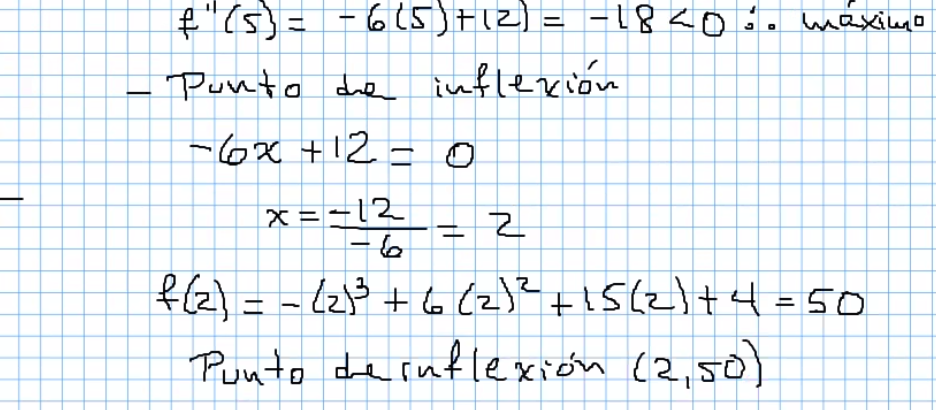 f''(5) = -6(5)+12) = -18 < 0 ∴ máximo
- Punto de inflexión
-6x + 12 = 0
x = -12/-6 = 2
f(2) = -(2)³ + 6(2)² + 15(2) + 4 = 50
Punto de inflexión (2,50)